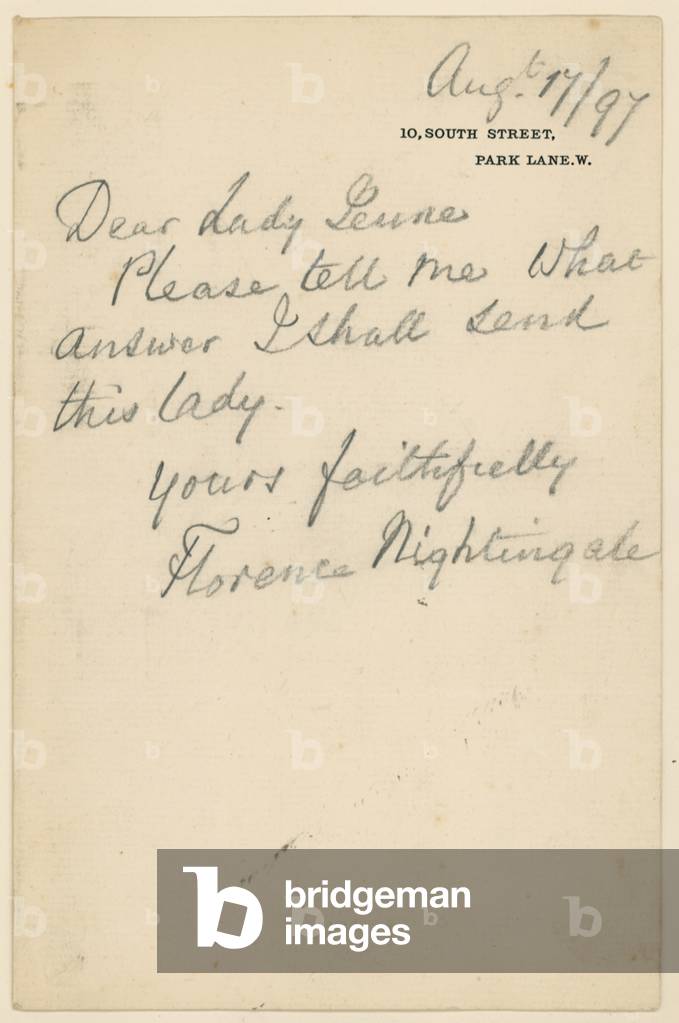 Augt. 17/97
10, SOUTH STREET,
PARK LANE. W.
Dear Lady Jeune
Please tell me what
answer I shall send
this lady.
Yours faithfully
Florence Nightingale
bridgeman
images